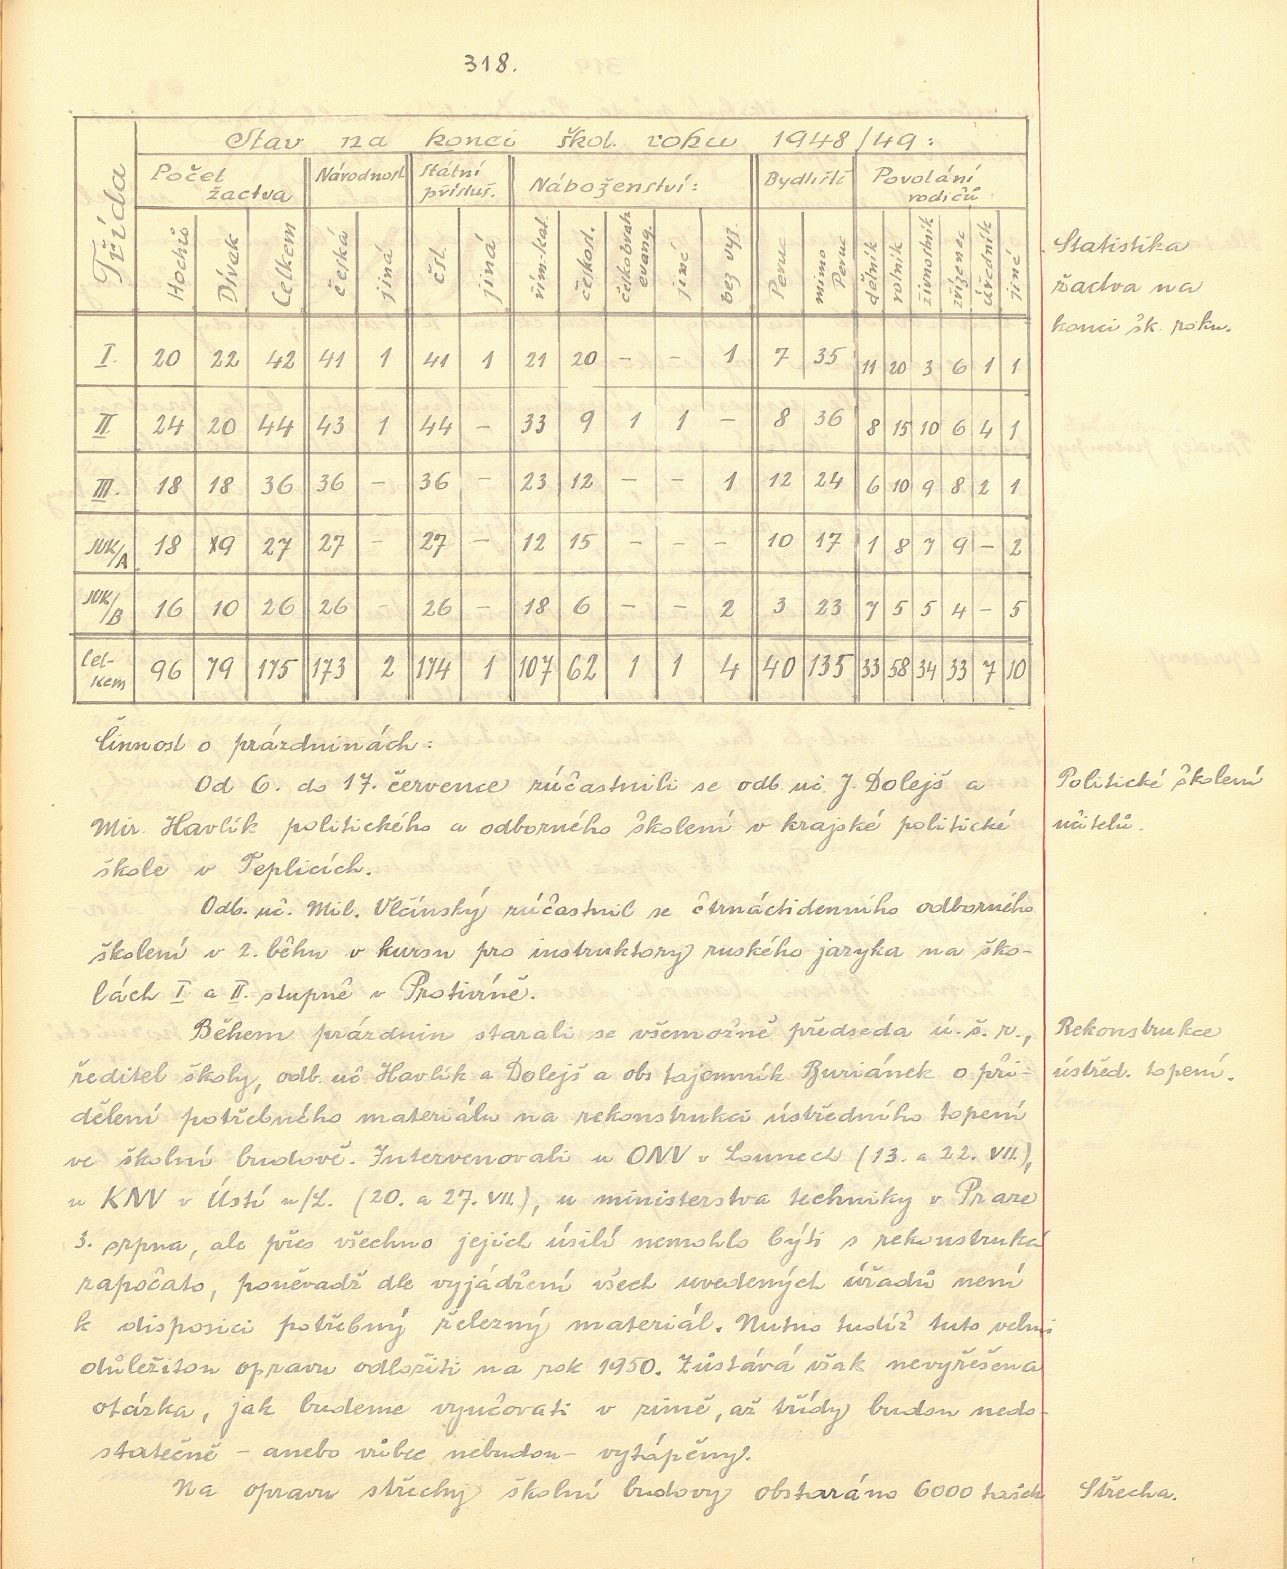 318.
Stav na konci škol. roku 1948/49:
Třída
Počet žactva
Národnost
Státní přísluš.
Náboženství:
Bydliště
Povolání rodičů
Hochů
Dívek
Celkem
česká
jiná
čsl.
jiná
řím.-kat.
českosl.
českobrah evang.
jiné
bez vyz.
Peruc
mimo Peruc
dělník
rolník
živnostník
zřízenec
úředník
jiné
I. 20 22 42 41 1 41 1 21 20 – – 1 7 35 11 20 3 6 1 1
II. 24 20 44 43 1 44 – 33 9 1 1 – 8 36 8 15 10 6 4 1
III. 18 18 36 36 – 36 – 23 12 – – 1 12 24 6 10 9 8 2 1
JUK/A 18 9 27 27 – 27 – 12 15 – – – 10 17 1 8 7 9 – 2
JUK/B 16 10 26 26 – 26 – 18 6 – – 2 3 23 7 5 5 4 – 5
Cel-kem 96 79 175 173 2 174 1 107 62 1 1 4 40 135 33 58 34 33 7 10
Statistika
žactva na
konci šk. roku.
Činnost o prázdninách:
Od 6. do 17. července zúčastnili se odb. uč. J. Dolejš a
Mir. Havlík politického a odborného školení v krajské politické
škole v Teplicích.
Politické školení
učitelů.
Odb. uč. Mil. Vlčinský zúčastnil se čtrnáctidenního odborného
školení v 2. běhu v kursu pro instruktory ruského jazyka na ško-
lách I a II. stupně v Protivíně.
Během prázdnin starali se všemožně předseda ú. š. r.,
ředitel školy, odb. uč Havlík a Dolejš a obs tajemník Buriánek o při-
dělení potřebného materiálu na rekonstrukci ústředního topení
ve školní budově. Intervenovali u ONV v Lounech (13. a 22. VII.),
u KNV v Ústí n/L. (20. a 27. VII.), u ministerstva techniky v Praze
3. srpna, ale přes všechno jejich úsilí nemohlo býti s rekonstrukcí
započato, poněvadž dle vyjádření všech uvedených úřadů není
k disposici potřebný železný materiál. Nutno tudíž tuto velmi
důležitou opravu odložiti na rok 1950. Zůstává však nevyřešena
otázka, jak budeme vyučovati v zimě, až třídy budou nedo-
statečně – anebo vůbec nebudou – vytápěny.
Rekonstrukce
ústřed. topení.
Na opravu střechy školní budovy obstaráno 6000 tašek
Střecha.